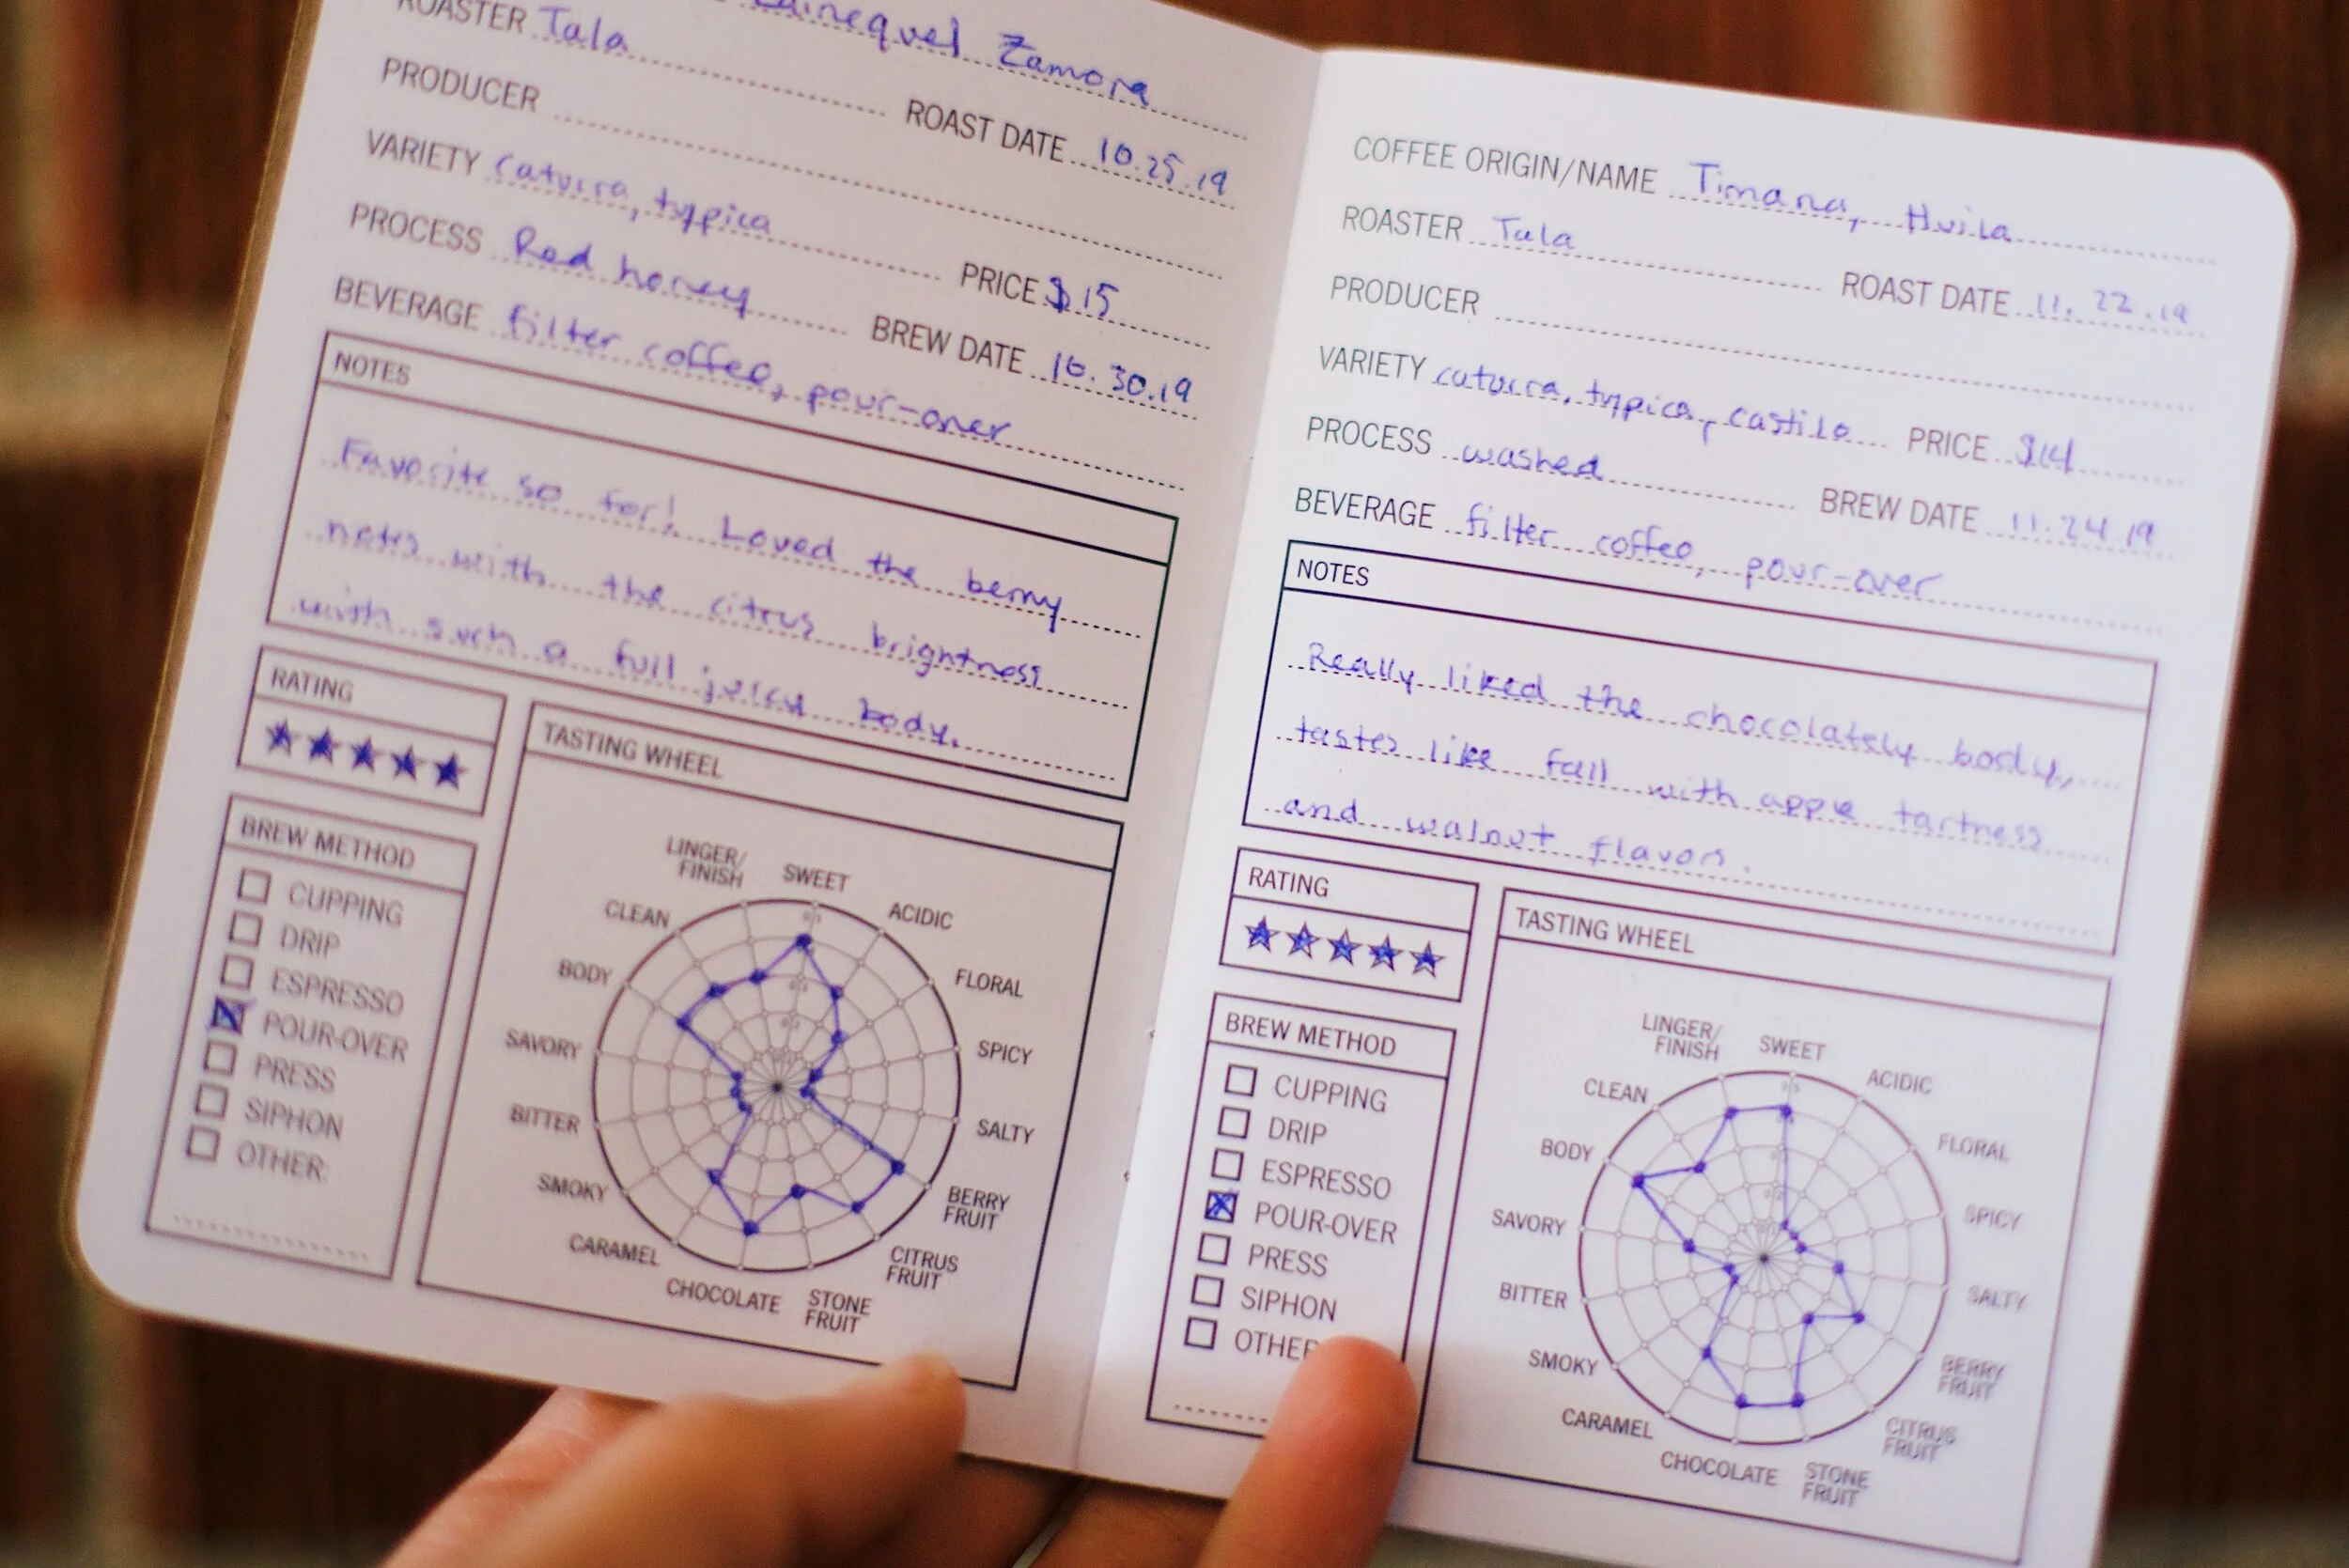 Zamora
ROASTER Tala
ROAST DATE 10.25.19
PRODUCER
VARIETY caturra, typica
PRICE $15
PROCESS Red honey
BREW DATE 10.30.19
BEVERAGE filter coffee, pour-over
NOTES
Favorite so far! Loved the berry
notes with the citrus brightness
with such a full juicy body.
RATING
TASTING WHEEL
BREW METHOD
CUPPING
DRIP
ESPRESSO
POUR-OVER
PRESS
SIPHON
OTHER:
LINGER/
FINISH
SWEET
ACIDIC
FLORAL
SPICY
SALTY
BERRY
FRUIT
CITRUS
FRUIT
STONE
FRUIT
CHOCOLATE
CARAMEL
SMOKY
BITTER
SAVORY
BODY
CLEAN
COFFEE ORIGIN/NAME Timana, Huila
ROASTER Tala
ROAST DATE 11.22.19
PRODUCER
VARIETY caturra, typica, castilo
PRICE $14
PROCESS washed
BREW DATE 11.24.19
BEVERAGE filter coffee, pour-over
NOTES
Really liked the chocolately body,
tastes like fall with apple tartness
and walnut flavors.
RATING
TASTING WHEEL
BREW METHOD
CUPPING
DRIP
ESPRESSO
POUR-OVER
PRESS
SIPHON
OTHER
LINGER/
FINISH
SWEET
ACIDIC
FLORAL
SPICY
SALTY
BERRY
FRUIT
CITRUS
FRUIT
STONE
FRUIT
CHOCOLATE
CARAMEL
SMOKY
BITTER
SAVORY
BODY
CLEAN